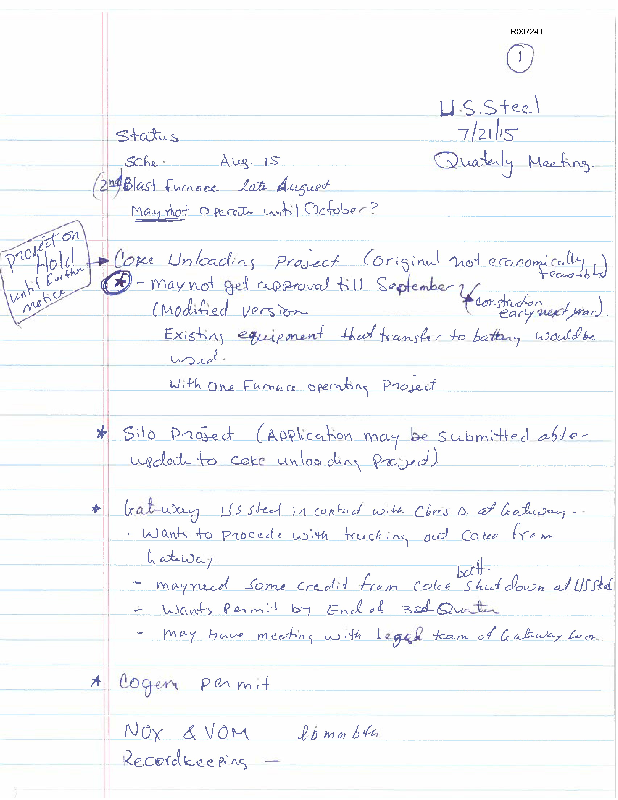 R007241
1
U.S. Steel
7/21/15
Quaterly Meeting.
Status
Sche. Aug. 15
(2nd) Blast Furnace late August
May not operate until October?
Project on Hold until further notice
Coke Unloading Project (Original not economically feasible)
* - may not get approval till September? (construction early next year)
(Modified version
Existing equipment that transfer to battery would be
used.
With One Furnace operating Project
* Silo Project (Application may be submitted after
update to coke unloading project)
* Gateway US Steel in contact with Chris D. at Gateway..
· Wants to procede with trucking out Coke from
Gateway
- may need some credit from Coke batt. shutdown at US Steel
- Wants Permit by End of 3rd Quarter
- may have meeting with legal team of Gateway
* Cogen permit
NOx & VOM lb/mmbtu
Recordkeeping —